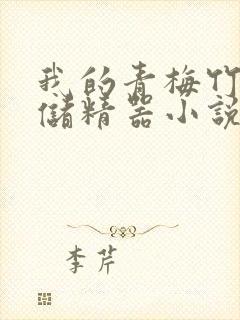 我的青梅竹
儲精器小說
李芹